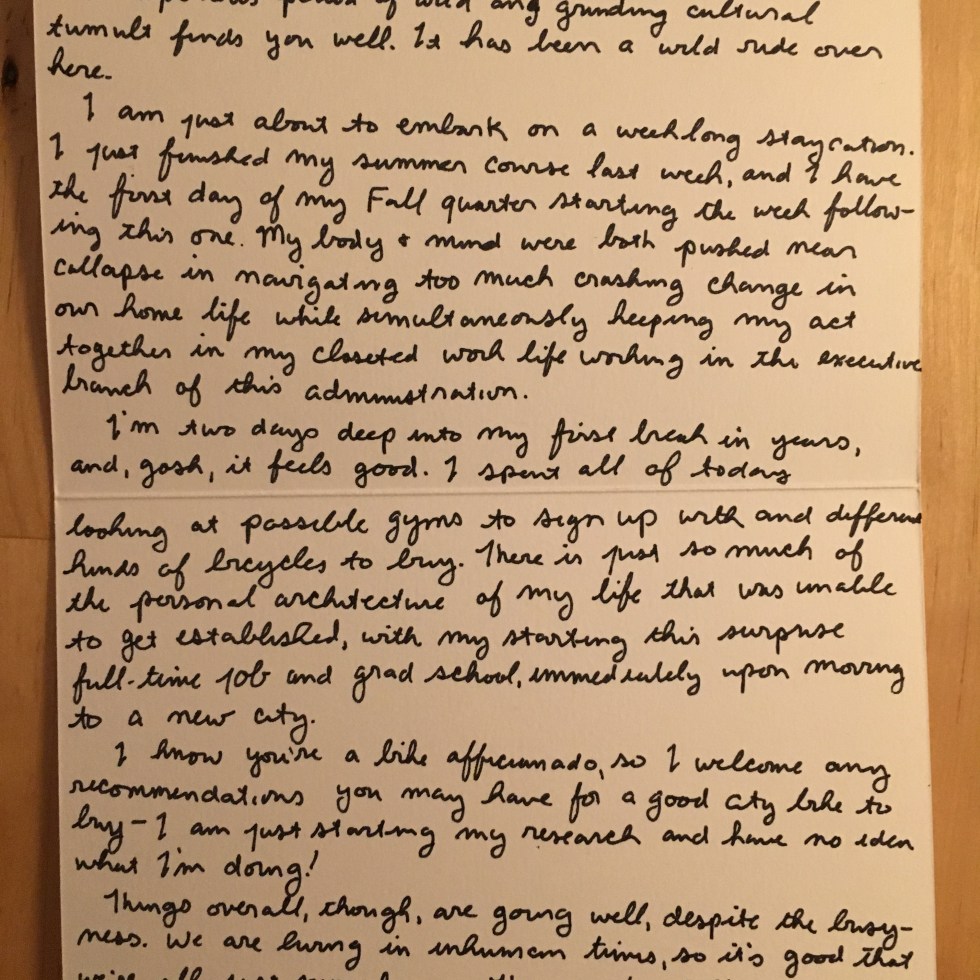 of wild and grinding cultural
tumult finds you well. It has been a wild ride over
here.
I am just about to embark on a weeklong staycation.
I just finished my summer course last week, and I have
the first day of my Fall quarter starting the week follow-
ing this one. My body & mind were both pushed near
collapse in navigating too much crashing change in
our home life while simultaneously keeping my act
together in my closeted work life working in the executive
branch of this administration.
I'm two days deep into my first break in years,
and, gosh, it feels good. I spent all of today
looking at possible gyms to sign up with and different
kinds of bicycles to buy. There is just so much of
the personal architecture of my life that was unable
to get established, with my starting this surprise
full-time job and grad school, immediately upon moving
to a new city.
I know you're a bike afficianado, so I welcome any
recommendations you may have for a good city bike to
buy – I am just starting my research and have no idea
what I'm doing!
Things overall, though, are going well, despite the busy-
ness. We are living in inhuman times, so it's good that
we're all just